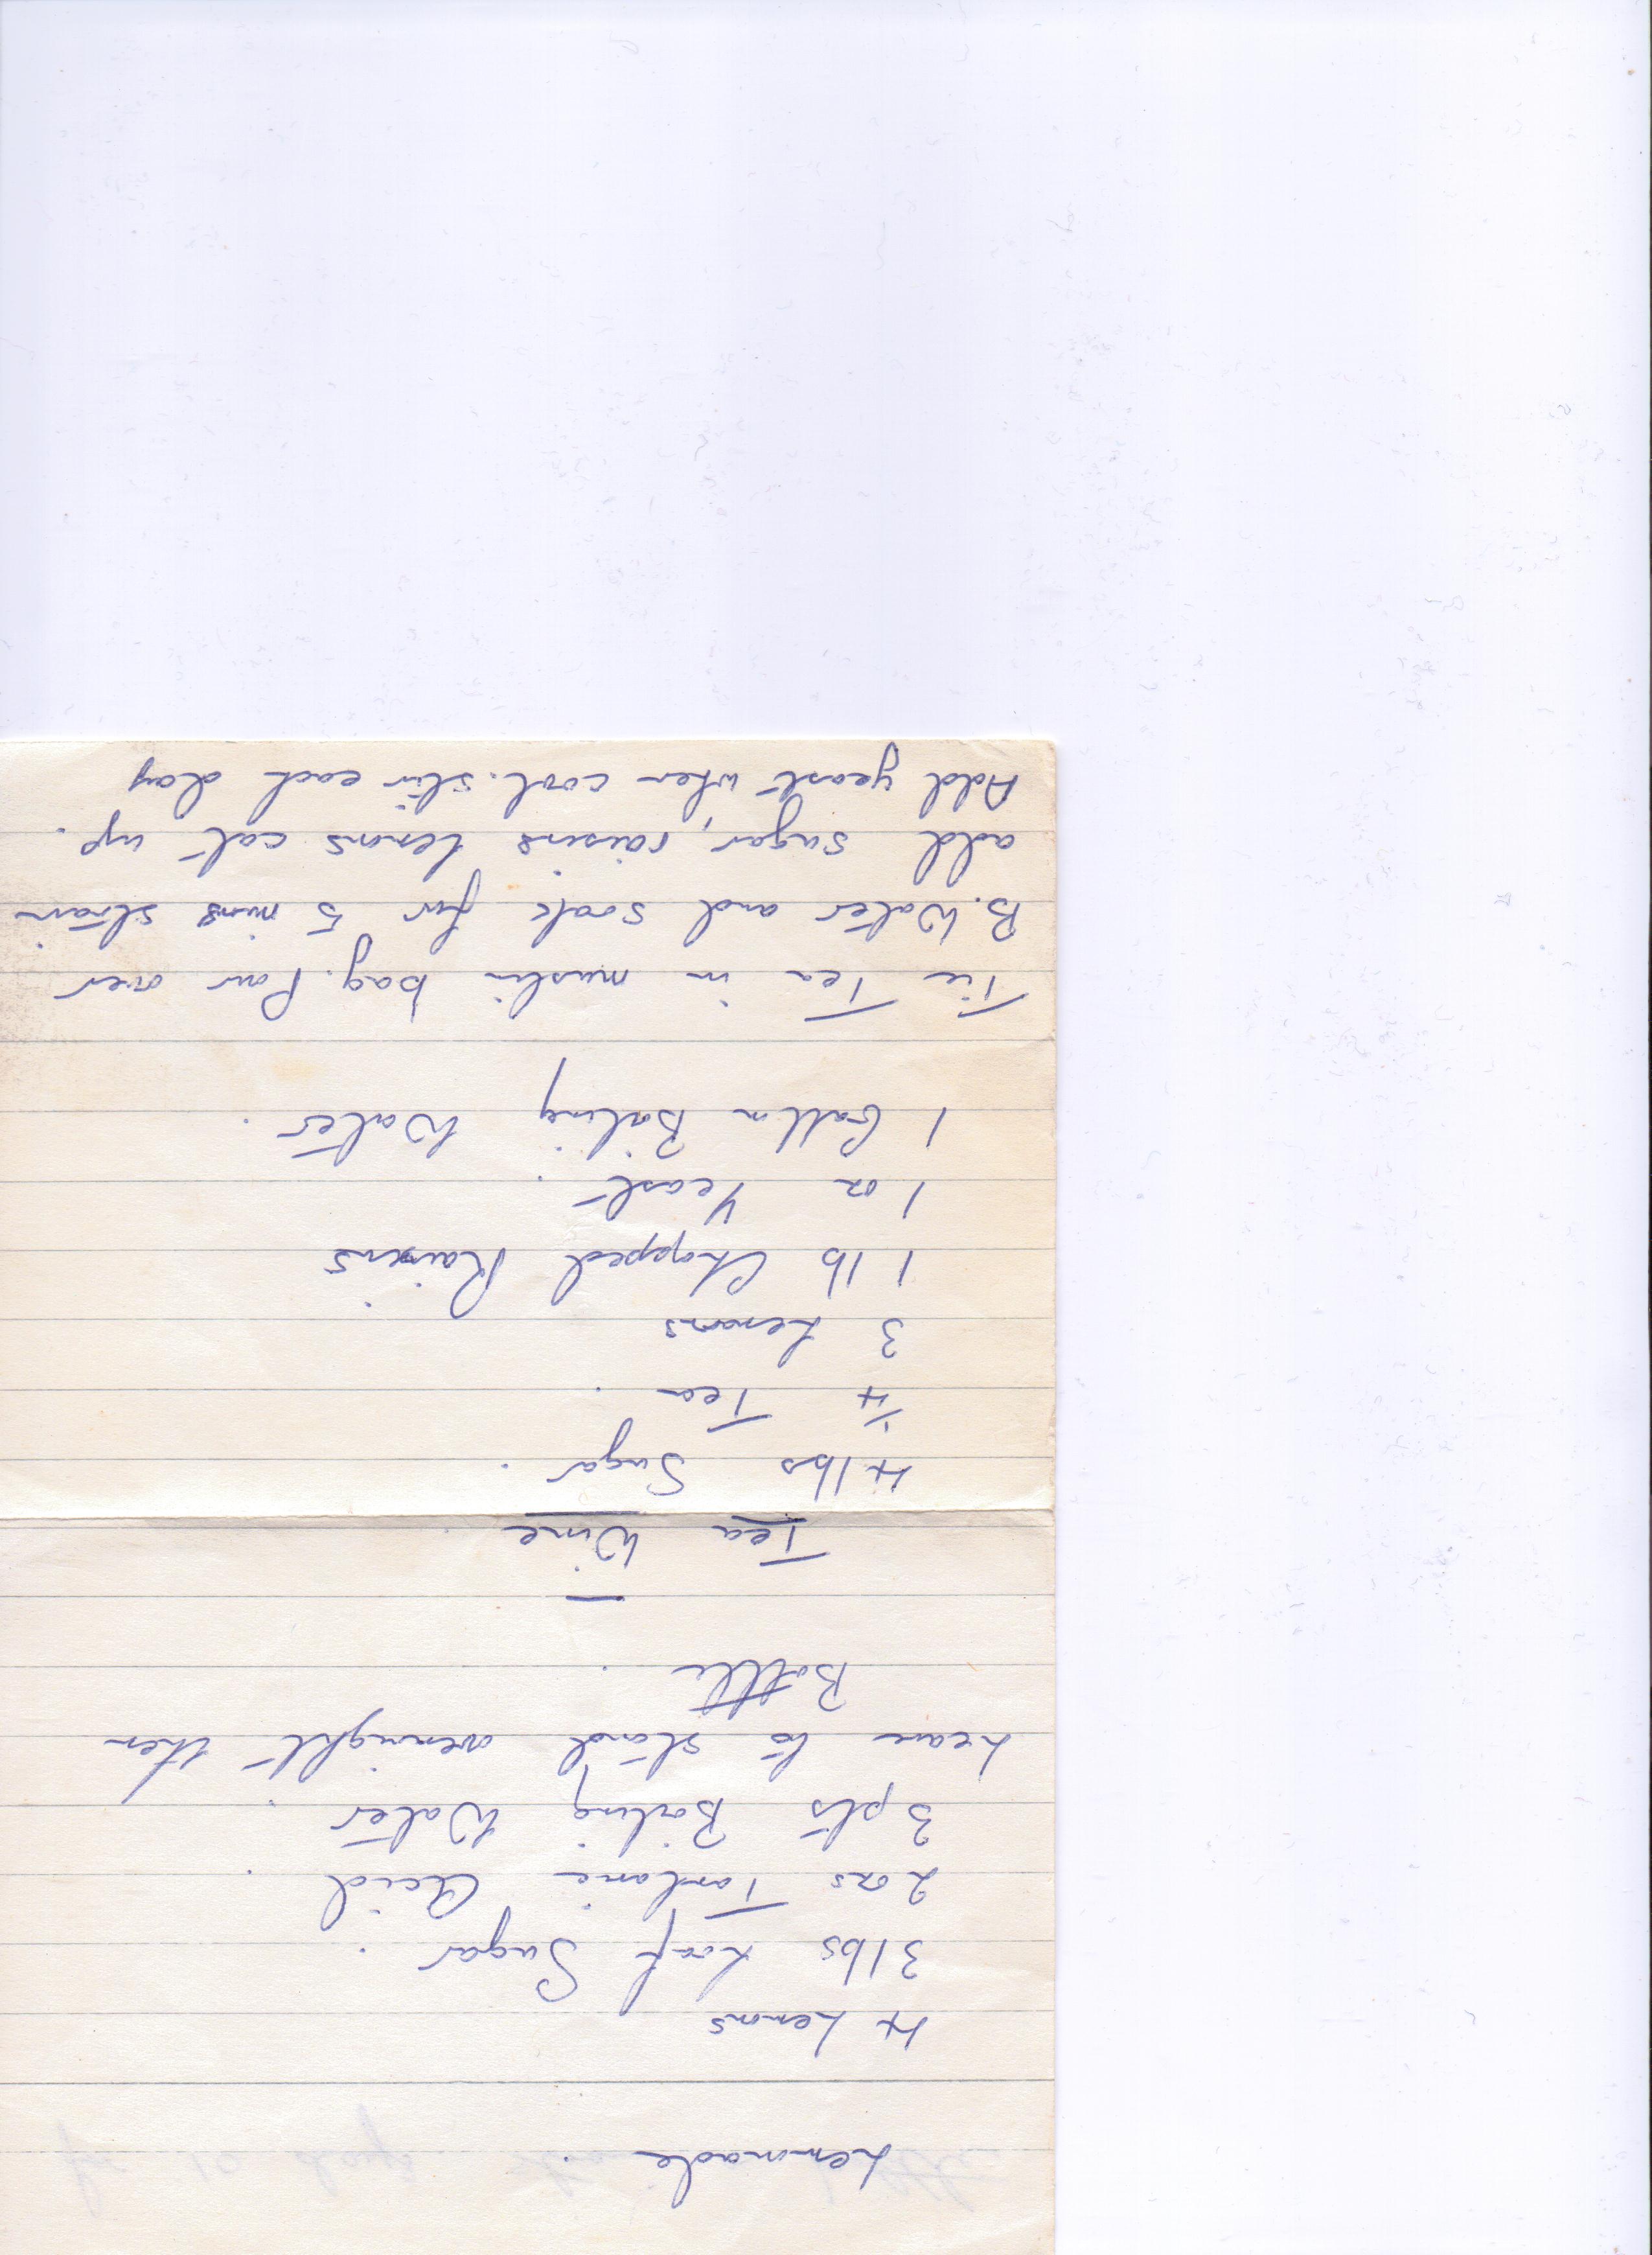 Lemonade.
4 Lemons
3 lbs Loaf Sugar.
2 ozs Tartaric Acid.
3 pts Boiling Water.
Leave to stand overnight then
Bottle.
Tea Wine.
4 lbs Sugar.
1/4 Tea.
3 Lemons
1 lb Chopped Raisins
1 oz Yeast.
1 Galln Boiling Water.
Tie Tea in muslin bag. Pour over
B. Water and soak for 5 mins strain
add sugar, raisins lemons cut up.
Add yeast when cool. stir each day
for 10 days